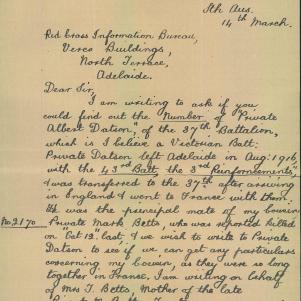 Sth Aus.
14th March.
Red Cross Information Bureau,
Verco Buildings,
North Terrace,
Adelaide.
Dear Sir,
I am writing to ask if you
could find out the Number of "Private
Albert Datson," of the 37th Battalion,
which is I believe a Victorian Batt:
Private Datson left Adelaide in Aug: 1916,
with the 43rd Batt, the 3rd Reinforcements"
& was transferred to the 37th after arriving
in England & went to France with them.
He was the principal mate of my cousin
No. 2170 Private Mark Betts, who was reported killed
on "Oct 12" last & we wish to write to Private
Datson to see if we can get any particulars
concerning my cousin, as they were so long
together in France. I am writing on behalf
of Mrs T. Betts, Mother of the late